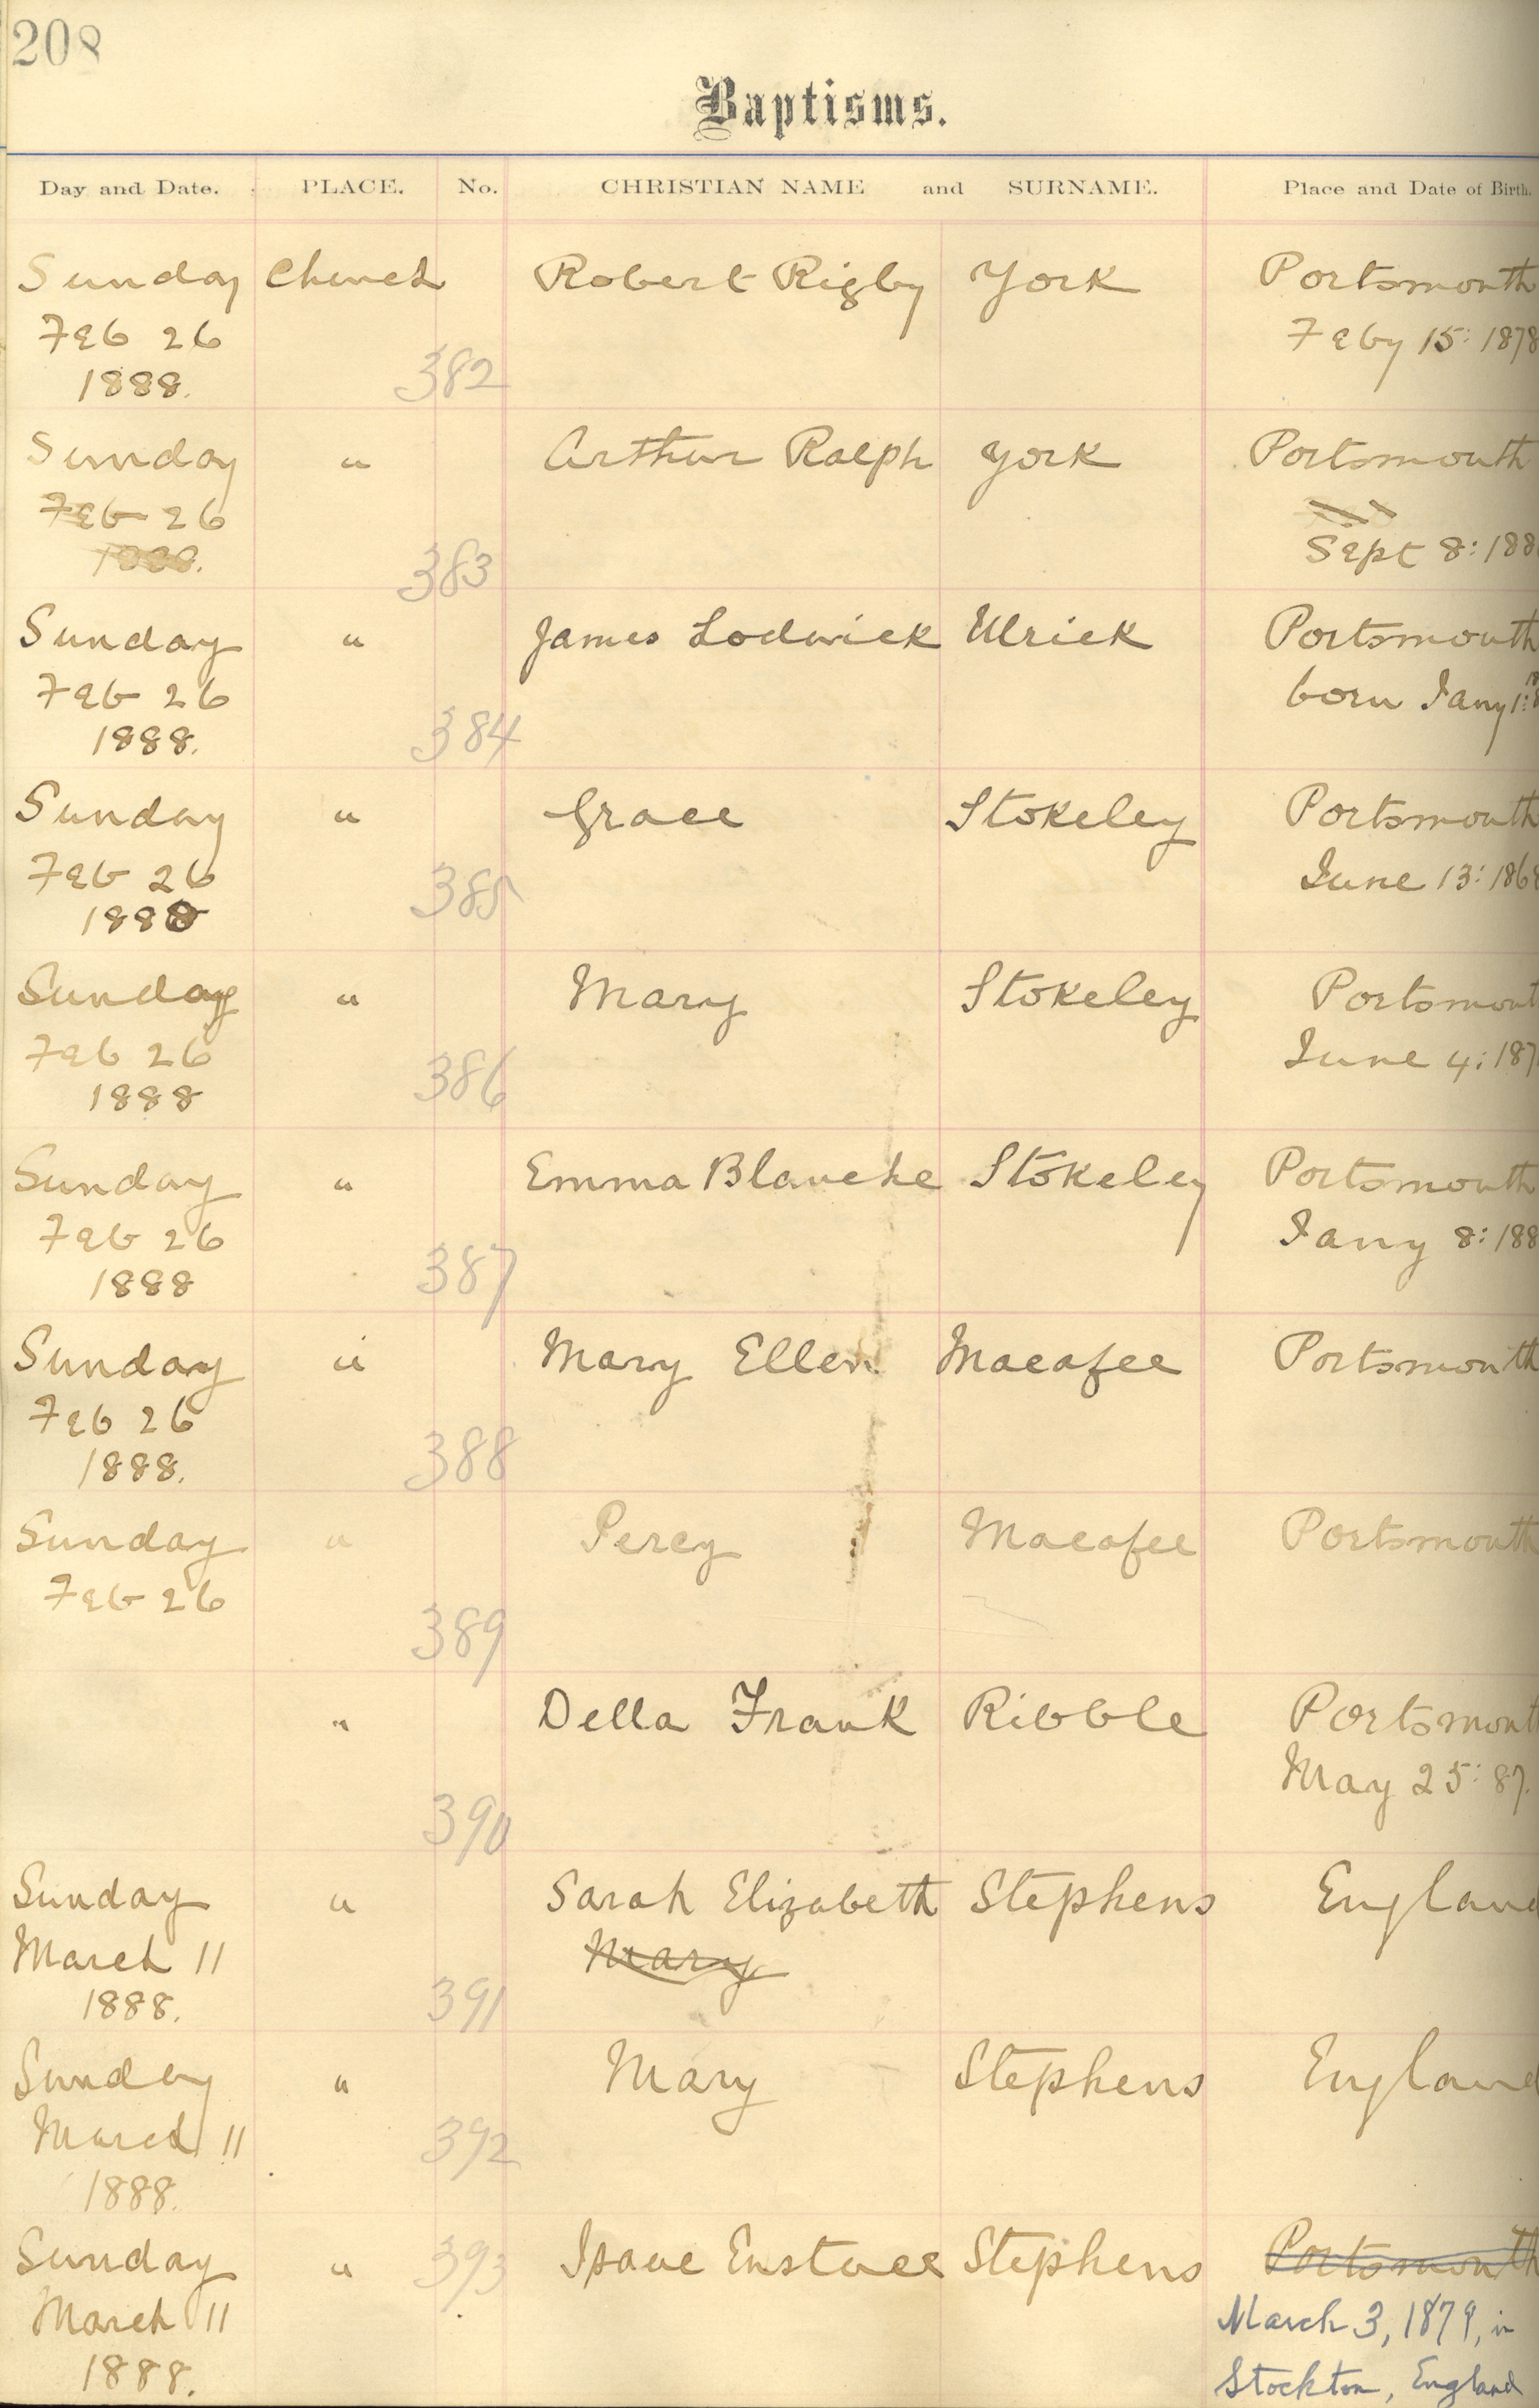 208
Baptisms.
Day and Date. PLACE. No. CHRISTIAN NAME and SURNAME. Place and Date of Birth.
Sunday Church Robert Rigby York Portsmouth
Feb 26 Feby 15: 1878
1888. 382
Sunday " Arthur Ralph York Portsmouth
Feb 26
1888. 383 Sept 8: 188
Sunday " James Lodwick Ulrick Portsmouth
Feb 26 born Jany 1:
1888. 384
Sunday " Grace Stokeley Portsmouth
Feb 26 385 June 13: 1868
1888
Sunday " Mary Stokeley Portsmout
Feb 26 386 June 4: 187
1888
Sunday " Emma Blanche Stokeley Portsmouth
Feb 26 387 Jany 8: 188
1888
Sunday " Mary Ellen Macafee Portsmouth
Feb 26
1888. 388
Sunday " Percy Macafee Portsmouth
Feb 26 389
" Della Frank Ribble Portsmout
May 25: 87.
390
Sunday " Sarah Elizabeth Stephens England
March 11 Mary
1888. 391
Sunday " Mary Stephens England
March 11 392
1888.
Sunday " 393 Isaac Stephens Portsmouth
March 11 March 3, 1879, in
1888. Stockton, England